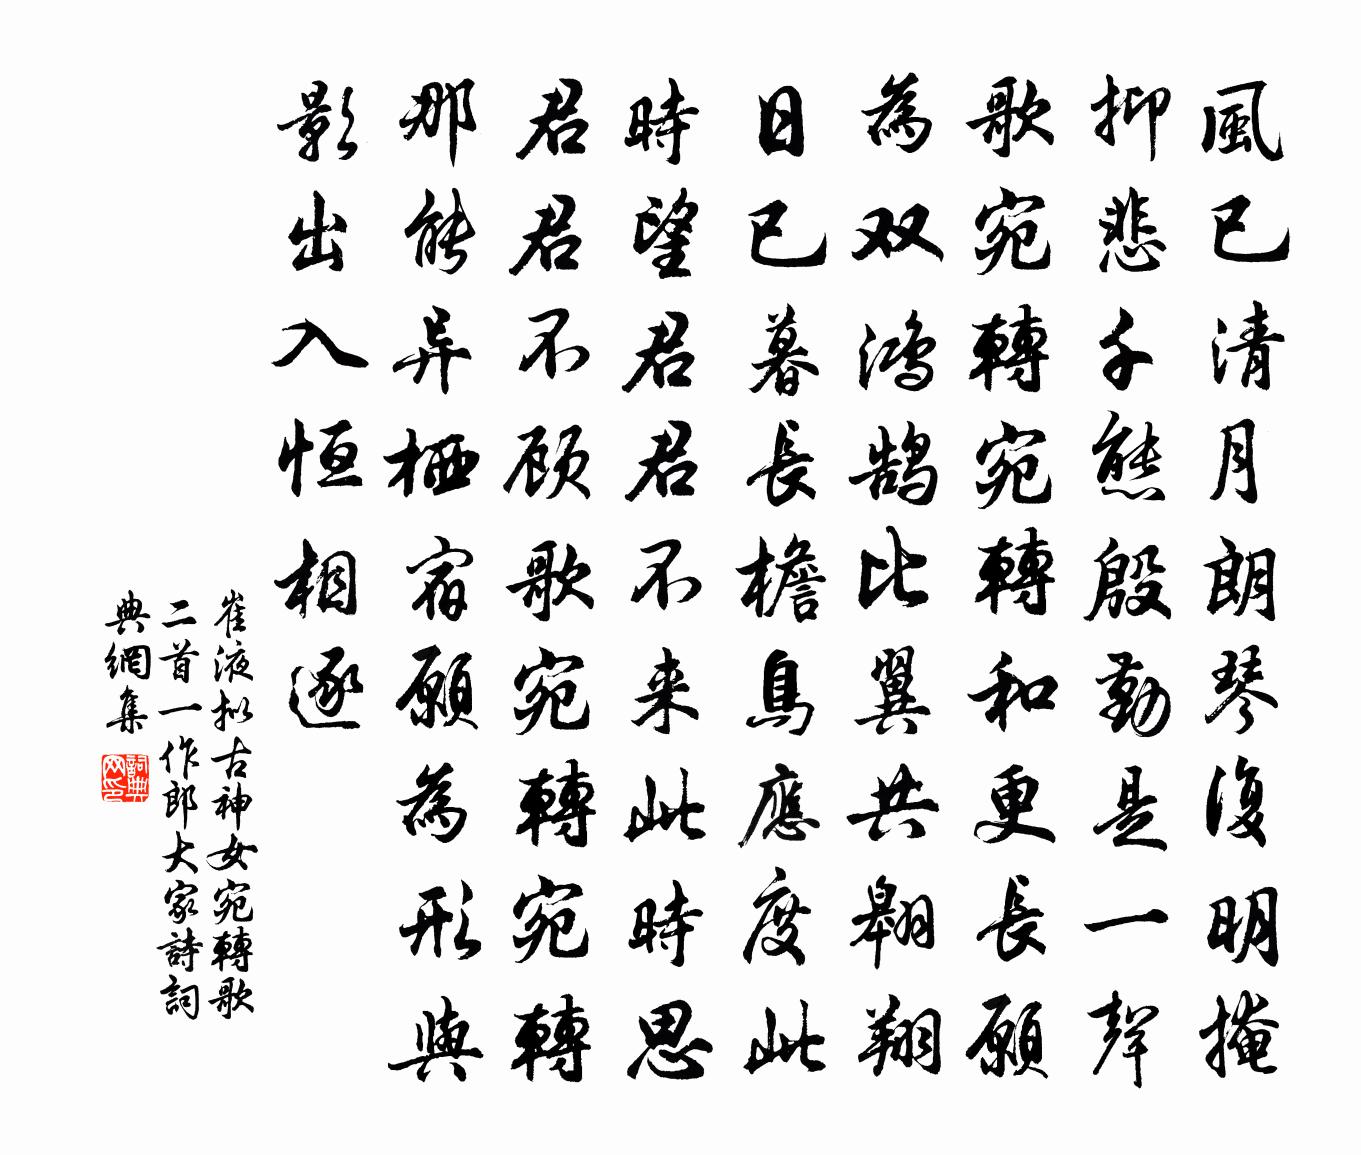 風已清月朗琴復明掩
抑悲千態殷勤是一聲
歌宛轉宛轉和更長願
為双鸿鹄比翼共翱翔
日已暮長檐鳥應度此
時望君君不来此時思
君君不顾歌宛轉宛轉
那能异栖宿願為形與
影出入恒相逐
崔液拟古神女宛轉歌
二首一作郎大家詩詞
典網集
詞典网印